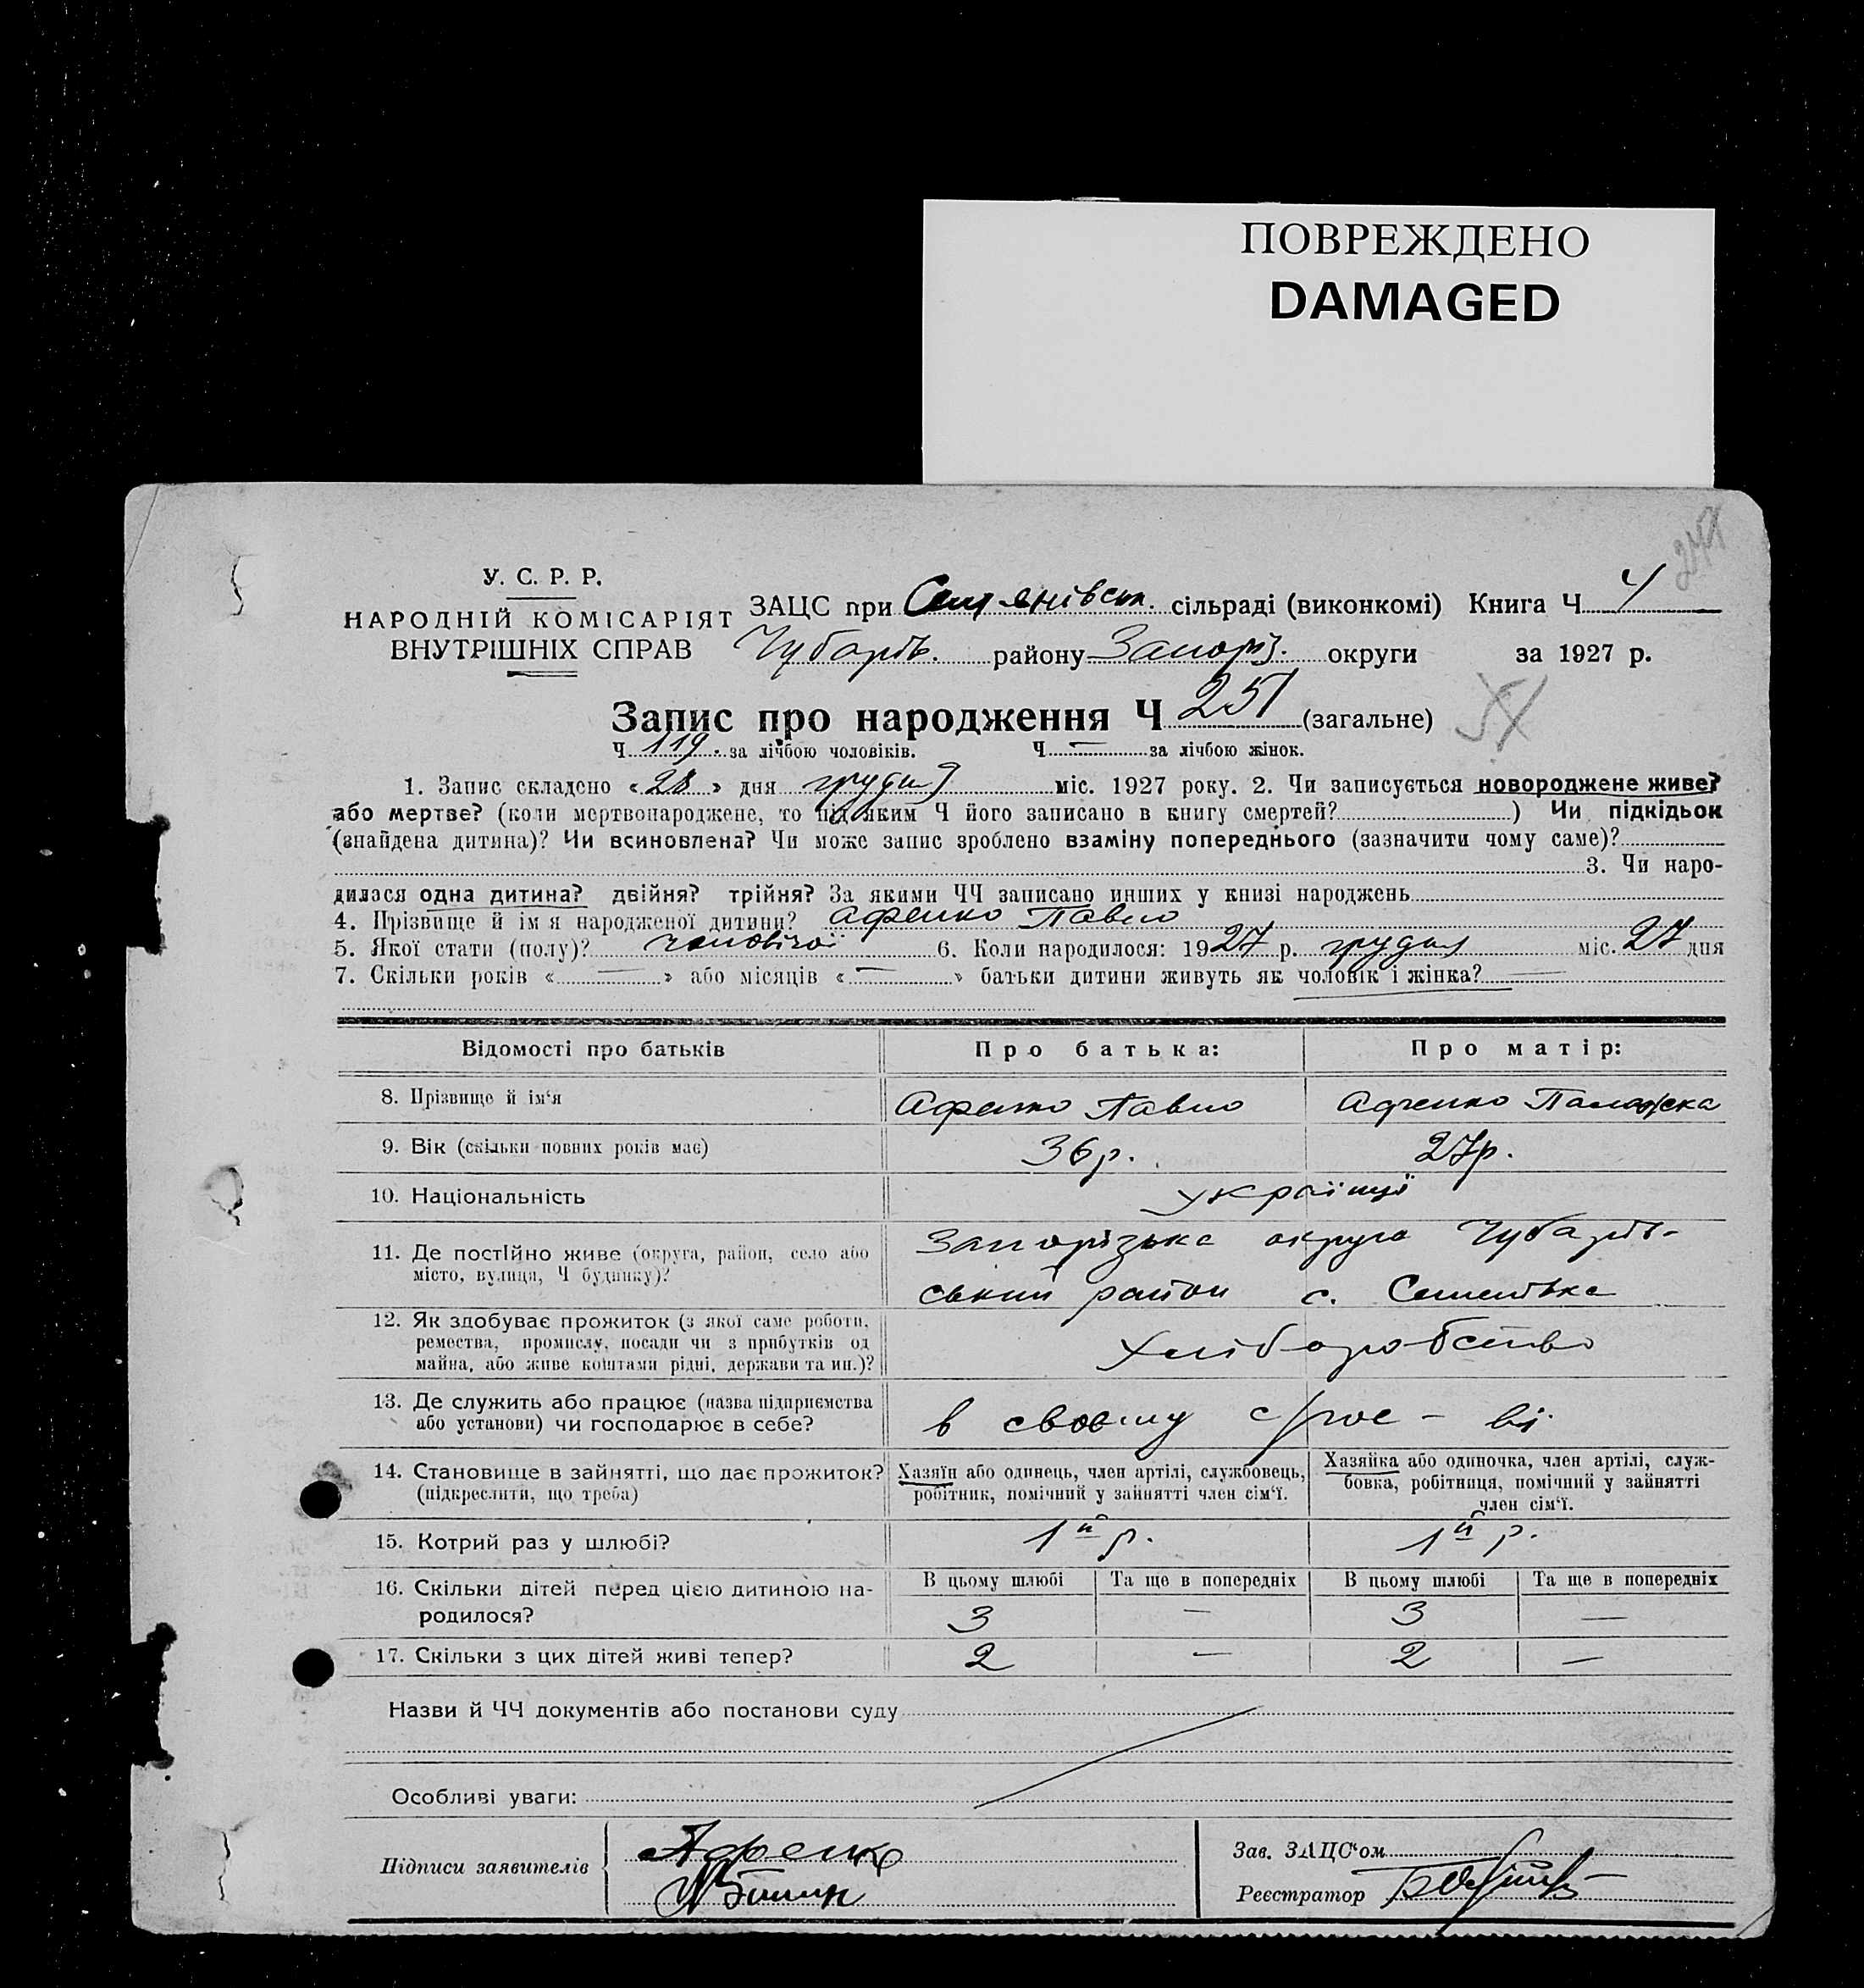 ПОВРЕЖДЕНО
DAMAGED
У. С. Р. Р.
НАРОДНІЙ КОМІСАРІЯТ
ВНУТРІШНІХ СПРАВ
ЗАЦС при сільраді (виконкомі) Книга Ч 4
Чубарів. району Запоріз. округи за 1927 р.
Запис про народження Ч 251 (загальне)
Ч 119. за лічбою чоловіків. Ч — за лічбою жінок.
1. Запис складено «28» дня грудня міс. 1927 року. 2. Чи записується новороджене живе?
або мертве? (коли мертвонароджене, то під яким Ч його записано в книгу смертей? ) Чи підкідьок
(знайдена дитина)? Чи всиновлена? Чи може запис зроблено взаміну попереднього (зазначити чому саме)?
3. Чи наро-
дилася одна дитина? двійня? трійня? За якими ЧЧ записано инших у книзі народжень
4. Прізвище й ім'я народженої дитини? Афенко Павло
5. Якої стати (полу)? чоловічої 6. Коли народилося: 1927 р. грудня міс. 27 дня
7. Скільки років « — » або місяців « — » батьки дитини живуть як чоловік і жінка? —
Відомості про батьків Про батька: Про матір:
8. Прізвище й ім'я Афенко Павло Афенко Палажка
9. Вік (скільки повних років має) 36 р. 27 р.
10. Національність українці
11. Де постійно живе (округа, район, село або місто, вулиця, Ч будинку)? Запорізька округа Чубарів-
ський район с. Семенівка
12. Як здобуває прожиток (з якої саме роботи,
ремества, промислу, посади чи з прибутків од
майна, або живе коштами рідні, держави та ин.)? Хліборобство
13. Де служить або працює (назва підприємства
або установи) чи господарює в себе? в своєму
14. Становище в зайнятті, що дає прожиток?
(підкреслити, що треба)
Хазяїн або одинець, член артілі, службовець,
робітник, помічний у зайнятті член сім'ї.
Хазяйка або одиночка, член артілі, служ-
бовка, робітниця, помічний у зайнятті
член сім'ї.
15. Котрий раз у шлюбі? 1й р. 1й р.
16. Скільки дітей перед цією дитиною на-
родилося?
В цьому шлюбі Та ще в попередніх В цьому шлюбі Та ще в попередніх
3 — 3 —
17. Скільки з цих дітей живі тепер? 2 — 2 —
Назви й ЧЧ документів або постанови суду
Особливі уваги:
Підписи заявителів Афенко
Зав. ЗАЦС'ом
Реєстратор